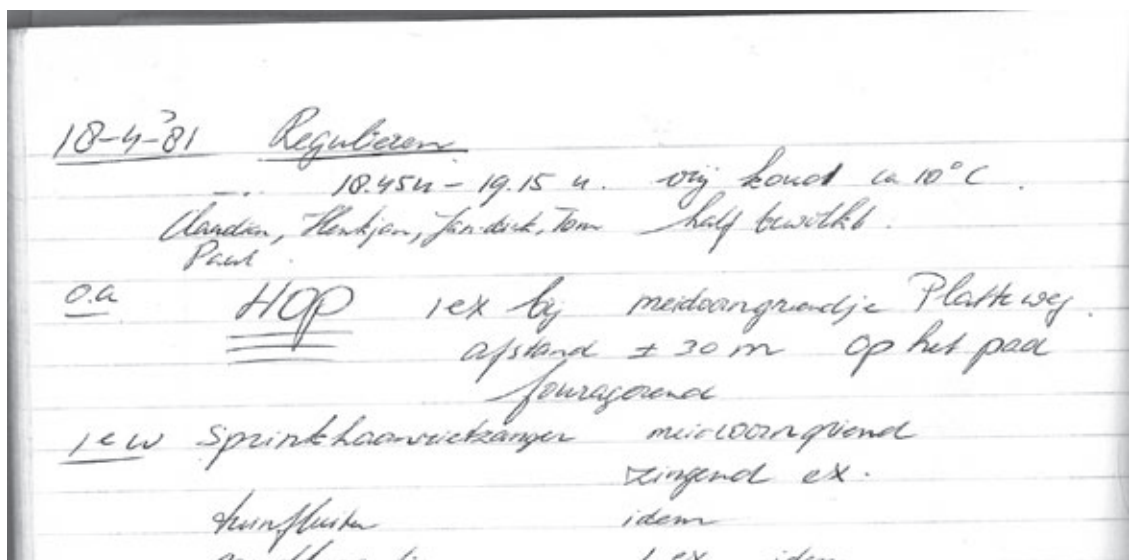 18-4-'81 Regulieren
18.45u - 19.15 u. vrij koud ca 10°C.
Claudia, Henkjan, Jan-dirk, Tom half bewolkt.
Paul.
o.a HOP 1 ex bij meidoorngriendje Platteweg.
afstand ± 30 m op het pad
fouragerend
1e w Sprinkhaanrietzanger meidoorngriend
zingend ex.
tuinfluiter idem
1 ex idem